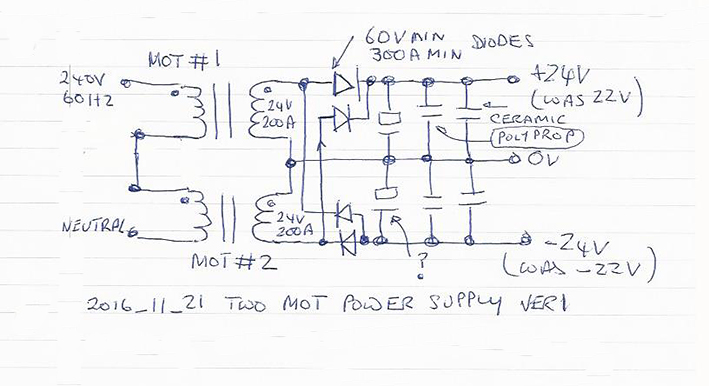 60V MIN
300A MIN DIODES
MOT #1
240V
60HZ
24V
200A
+24V
(WAS 22V)
CERAMIC
POLYPROP
0V
NEUTRAL
24V
200A
-24V
(WAS -22V)
MOT #2
?
2016_11_21 TWO MOT POWER SUPPLY VER1